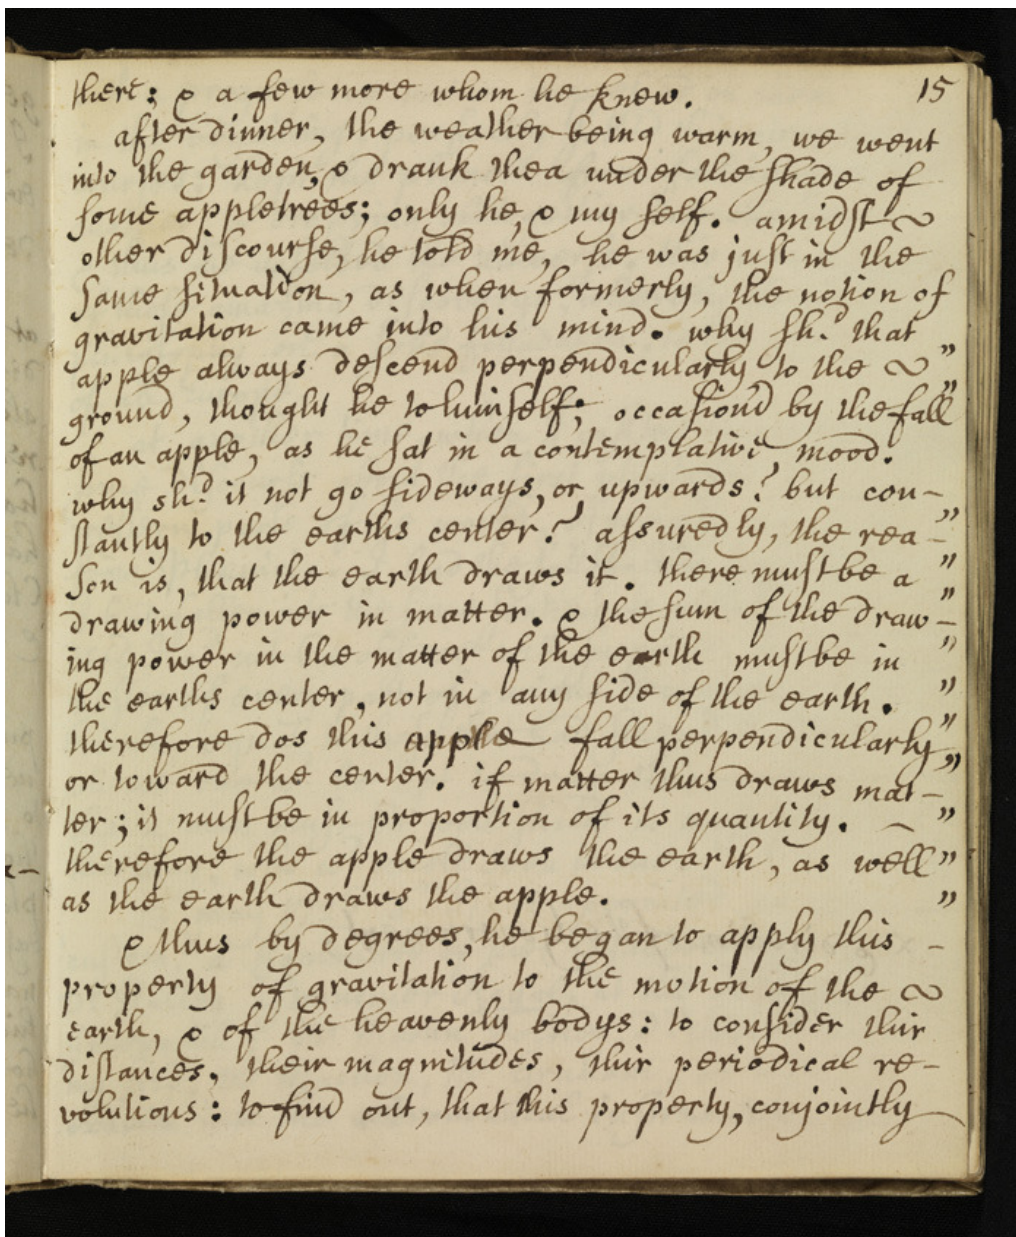 15
there: & a few more whom he knew.
after dinner, the weather being warm, we went
into the garden, & drank thea under the shade of
some appletrees; only he, & my self. amidst ~
other discourse, he told me, he was just in the
same situation, as when formerly, the notion of
gravitation came into his mind. why sh.d that
apple always descend perpendicularly to the ~ "
ground, thought he to himself; occasion'd by the fall "
of an apple, as he sat in a contemplative mood.
why sh.d it not go sideways, or upwards? but con- "
stantly to the earths center? assuredly, the rea- "
son is, that the earth draws it. there must be a "
drawing power in matter. & the sum of the draw- "
ing power in the matter of the earth must be in "
the earths center, not in any side of the earth. "
therefore dos this apple fall perpendicularly, "
or toward the center. if matter thus draws mat- "
ter; it must be in proportion of its quantity. - "
therefore the apple draws the earth, as well "
as the earth draws the apple. "
& thus by degrees, he began to apply this -
property of gravitation to the motion of the ~
earth, & of the heavenly bodys: to consider thir
distances, their magnitudes, thir periodical re-
volutions: to find out, that this property, conjointly